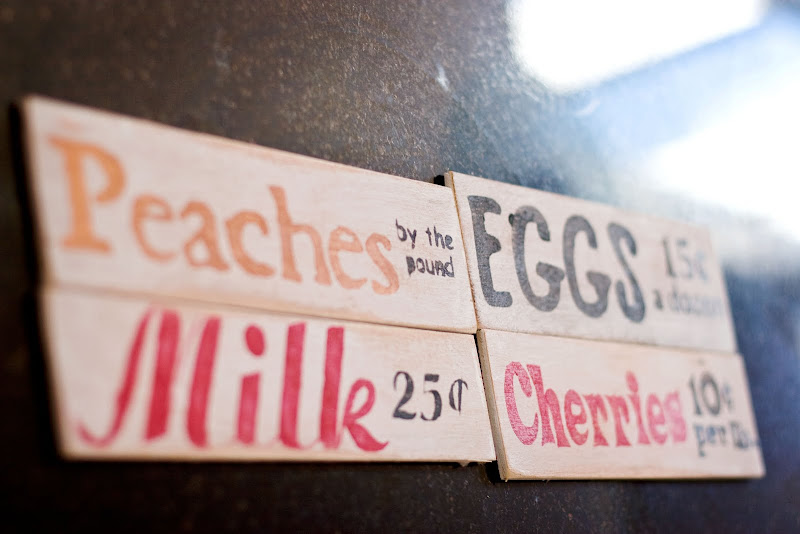 Peaches by the
pound
EGGS 15¢
a dozen
Milk 25¢
Cherries 10¢
per lb.